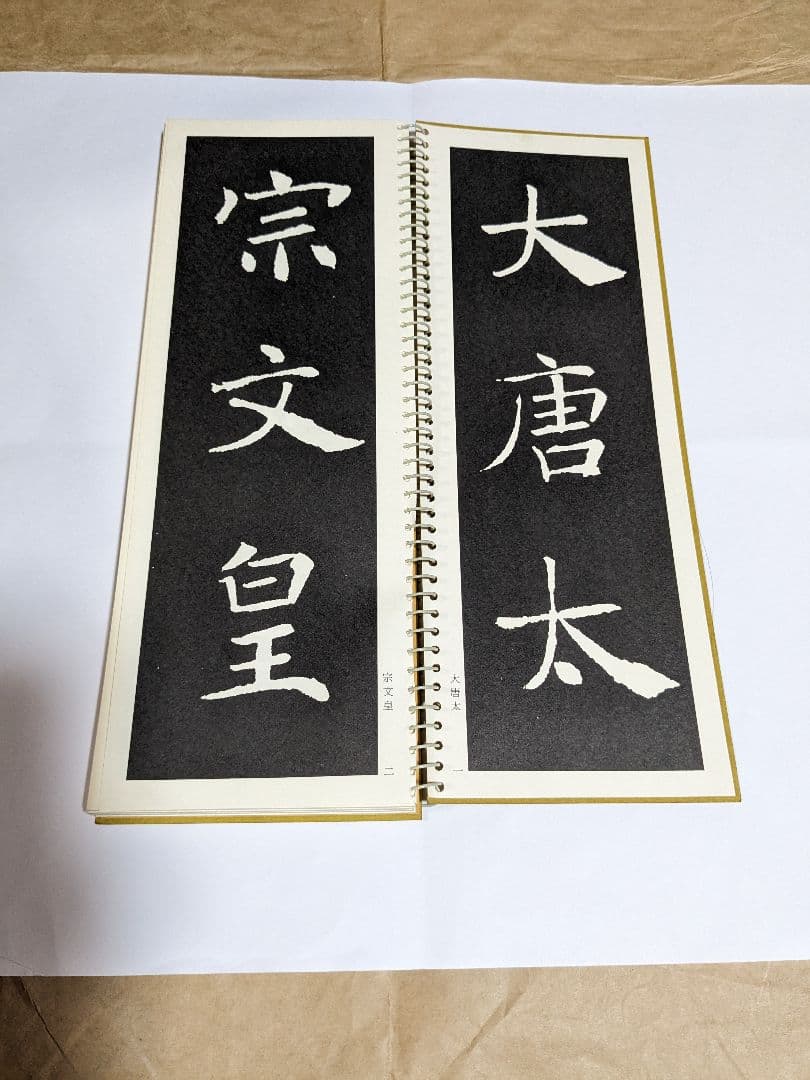 大唐太
大唐太
一
宗文皇
宗文皇
二